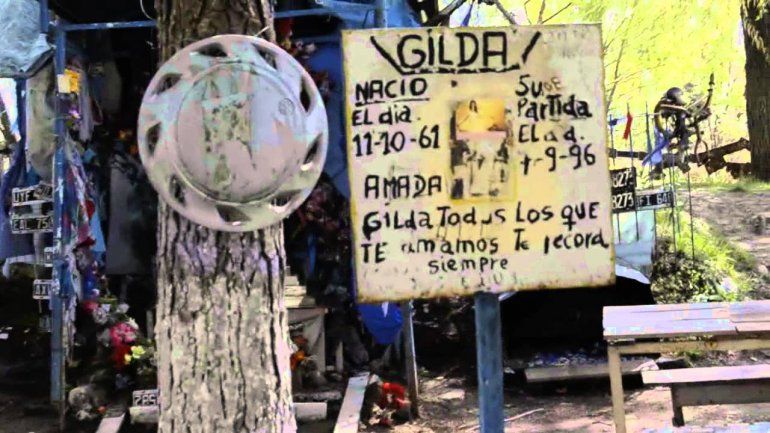 GILDA
NACIO
El dia.
11-10-61
Su
Partida
El
-9-96
AMADA
Gilda Todos Los que
TE amamos Te recorda
siempre